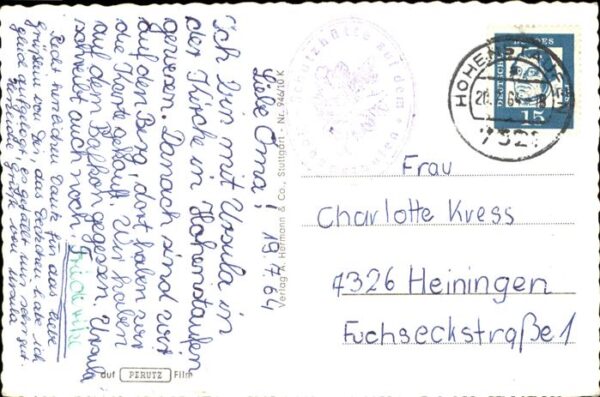 Liebe Oma! 19.7.64
Ich bin mit Ursula in
der Kirche in Hohenstaufen
gewesen. Danach sind wir
auf den Berg, dort haben wir
die Karte gekauft. Wir haben
auf dem Balkon gegessen. Ursula
schreibt auch noch. Friederike
Recht herzlichen Dank für das liebe
von Dir, das habe ich
gleich es gefällt mir sehr gut.
Grüße von Ursula
Verlag A. Hermann & Co., Stuttgart - Nr. 946/10 K
auf PERUTZ Film
Schutzhütte auf dem
HOHENSTAUFEN
7321
DEUTSCHE BUNDESPOST
15
Frau
Charlotte Kress
7326 Heiningen
Fuchseckstraße 1